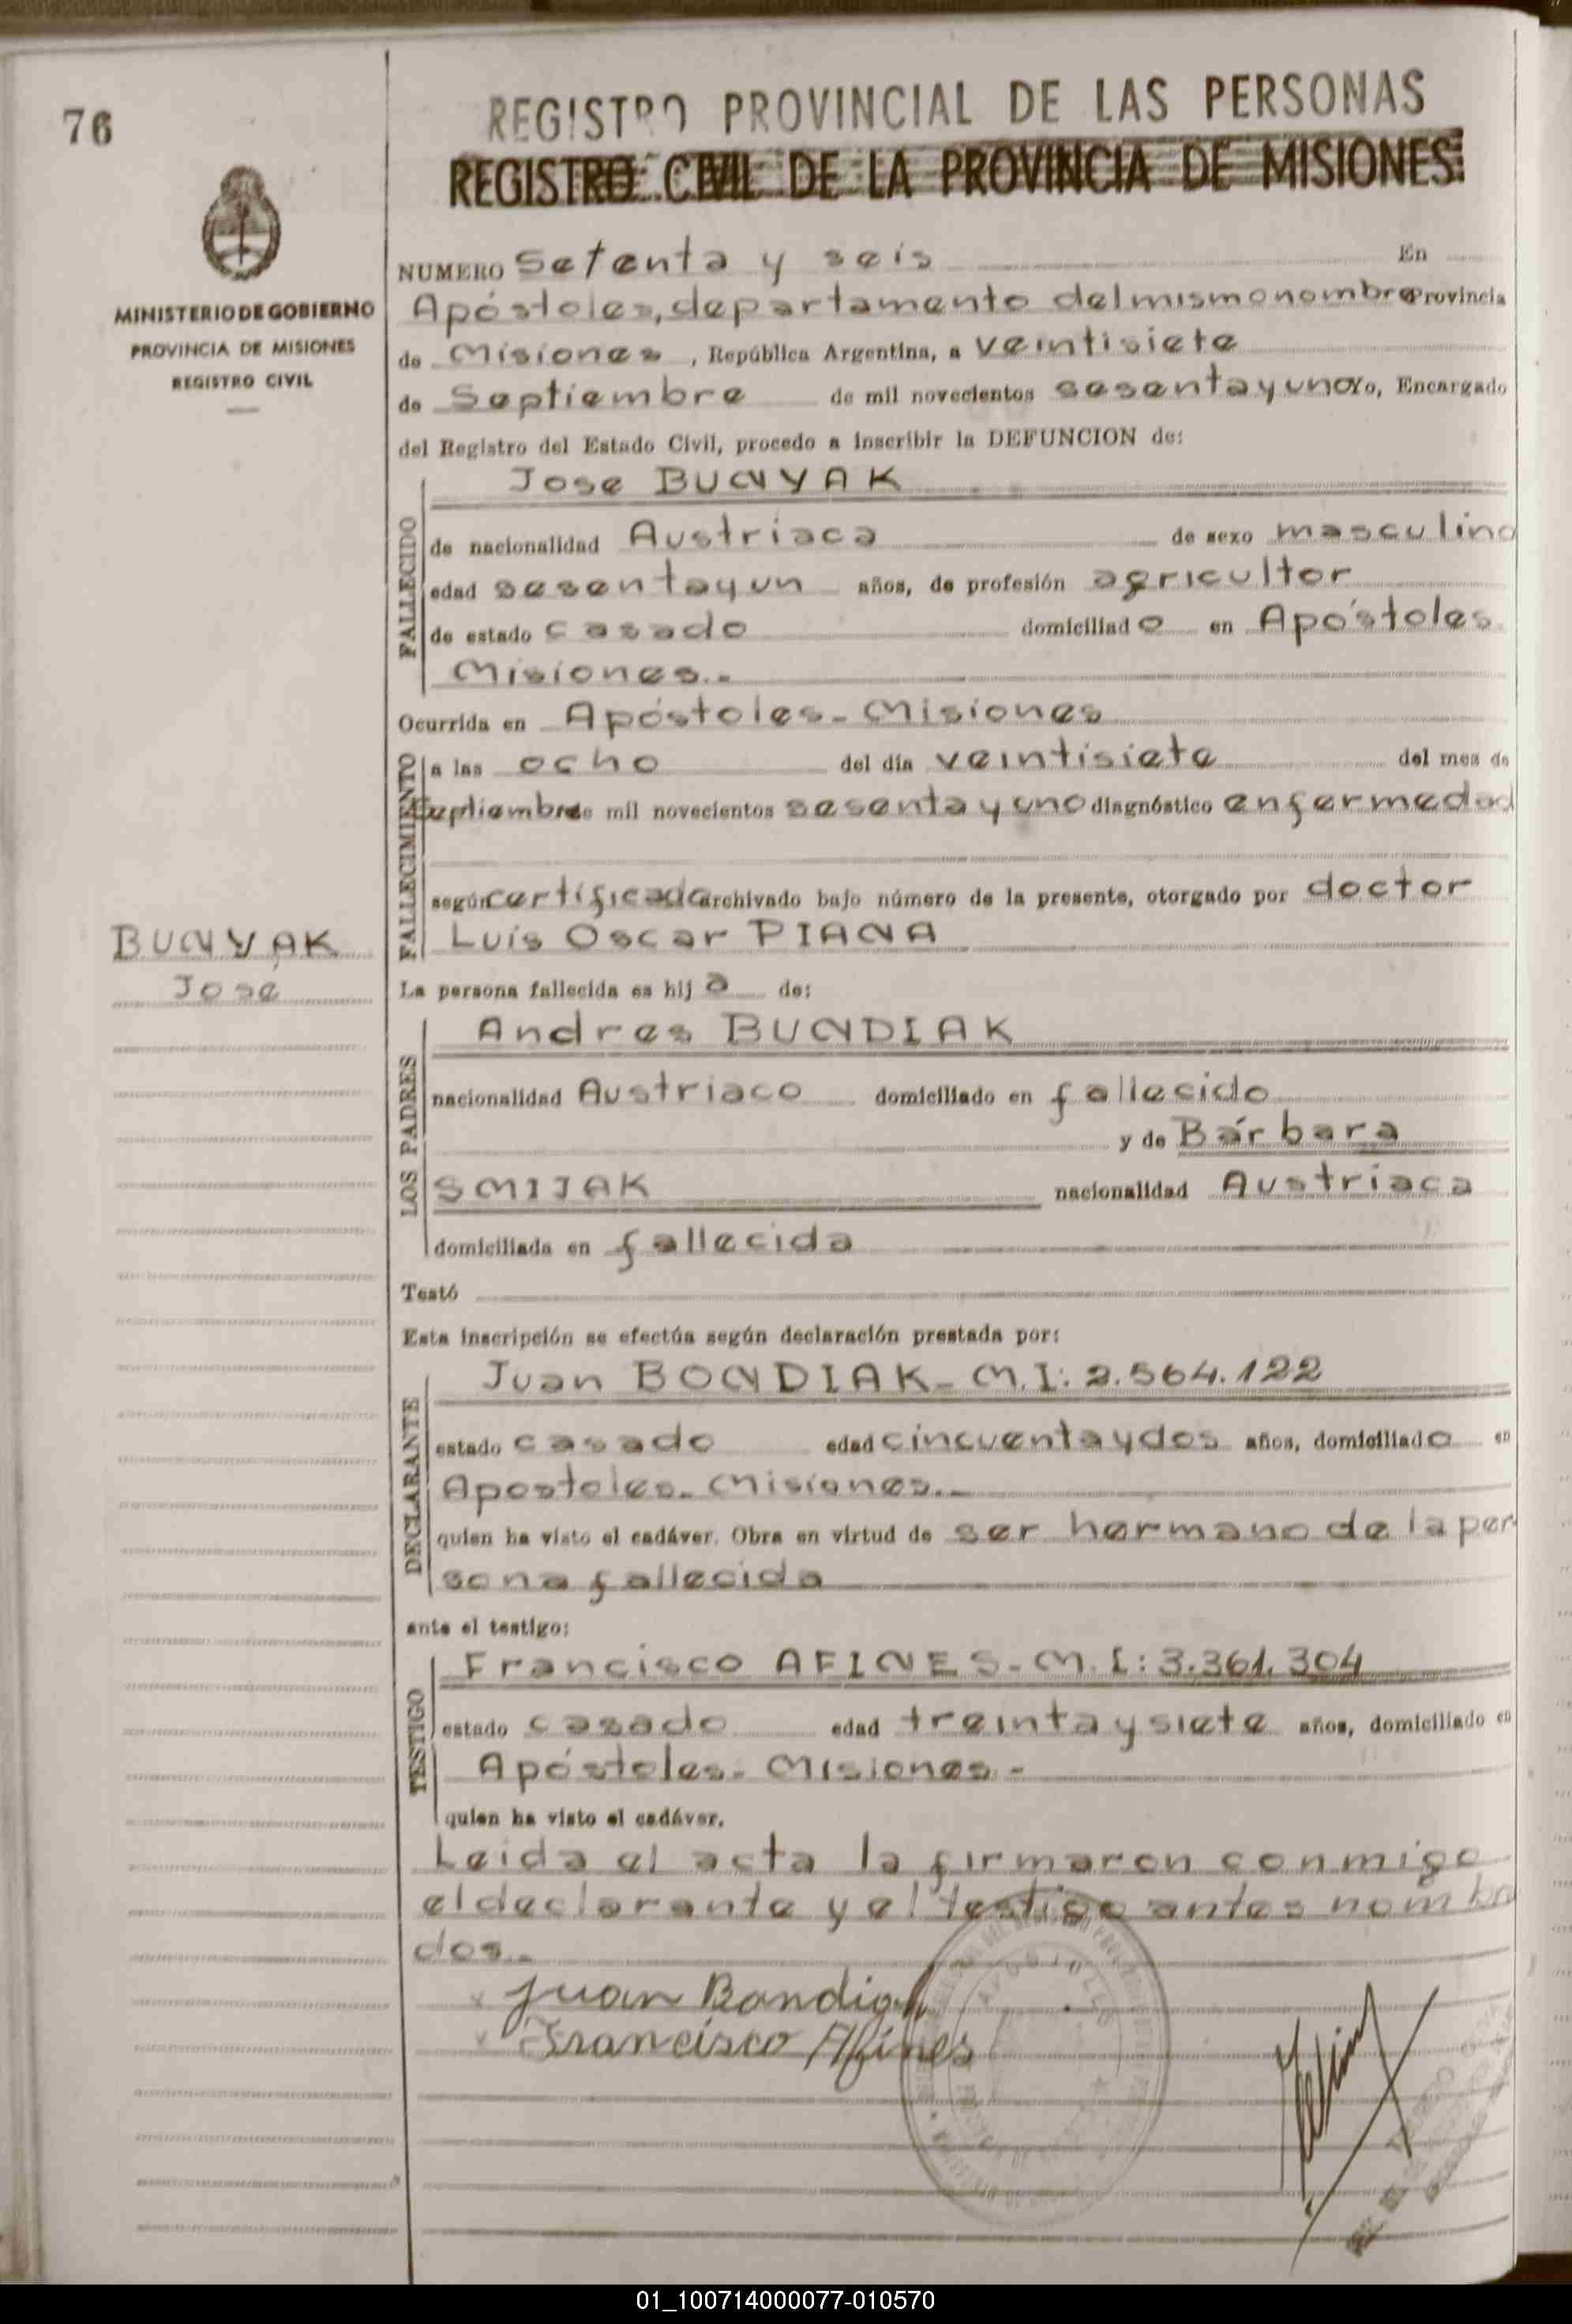 76
MINISTERIO DE GOBIERNO
PROVINCIA DE MISIONES
REGISTRO CIVIL
BUNYAK
José
REGISTRO PROVINCIAL DE LAS PERSONAS
REGISTRO CIVIL DE LA PROVINCIA DE MISIONES
NUMERO Setenta y seis En
Apóstoles, departamento del mismo nombre Provincia
de Misiones, República Argentina, a veintisiete
de Septiembre de mil novecientos sesenta y uno Yo, Encargado
del Registro del Estado Civil, procedo a inscribir la DEFUNCION de:
FALLECIDO
Jose BUNYAK
de nacionalidad Austriaca de sexo masculino
edad sesenta y un años, de profesión agricultor
de estado casado domiciliado en Apóstoles
Misiones.-
Ocurrida en Apóstoles - Misiones
FALLECIMIENTO
a las ocho del día veintisiete del mes de
Septiembre de mil novecientos sesenta y uno diagnóstico enfermedad
según certificado archivado bajo número de la presente, otorgado por doctor
Luís Oscar PIANA
La persona fallecida es hij a de:
LOS PADRES
Andres BUNDIAK
nacionalidad Austriaco domiciliado en fallecido
y de Bárbara
SMIJAK nacionalidad Austriaca
domiciliada en fallecida
Testó
Esta inscripción se efectúa según declaración prestada por:
DECLARANTE
Juan BONDIAK - M.I: 2.564.122
estado casado edad cincuenta y dos años, domiciliado en
Apostoles - Misiones.-
quien ha visto el cadáver. Obra en virtud de ser hermano de la per
sona fallecida
ante el testigo:
TESTIGO
Francisco AFINES - M.I: 3.361.304
estado casado edad treinta y siete años, domiciliado en
Apóstoles - Misiones -
quien ha visto el cadáver.
Leida el acta la firmaron conmigo
el declarante y el testigo antes nombra
dos.-
x Juan Bondiak
x Francisco Afines
01_100714000077-010570